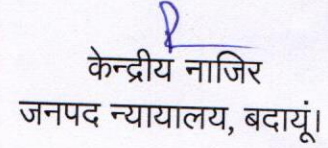 केन्द्रीय नाजिर
जनपद न्यायालय, बदायूं।